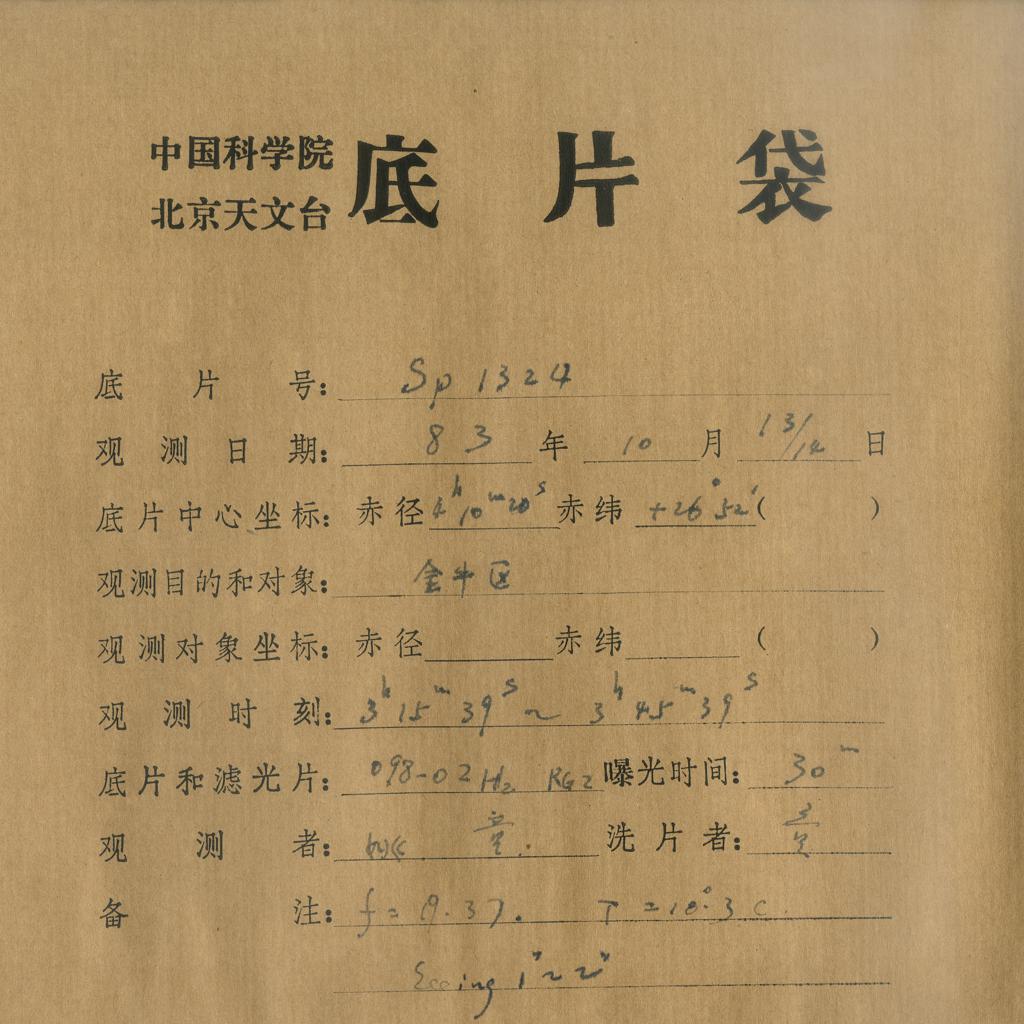 中国科学院
北京天文台
底片袋
底片号: Sp 1324
观测日期: 83年 10月 13/14日
底片中心坐标: 赤径 4h10m20s 赤纬 +26°52′( )
观测目的和对象: 金牛区
观测对象坐标: 赤径 赤纬 ( )
观测时刻: 3h15m39s ~ 3h45m39s
底片和滤光片: 098-02 H2 RG2 曝光时间: 30m
观测者: 洗片者:
备注: f = 19.37. T = 10°.3 C
Seeing 1″~2″